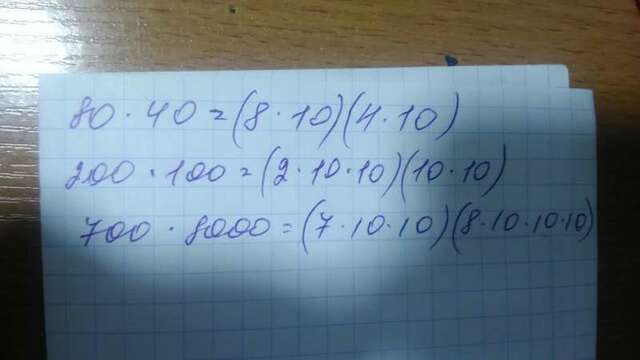 80 · 40 = (8 · 10)(4 · 10)
200 · 100 = (2 · 10 · 10)(10 · 10)
700 · 8000 = (7 · 10 · 10)(8 · 10 · 10 · 10)